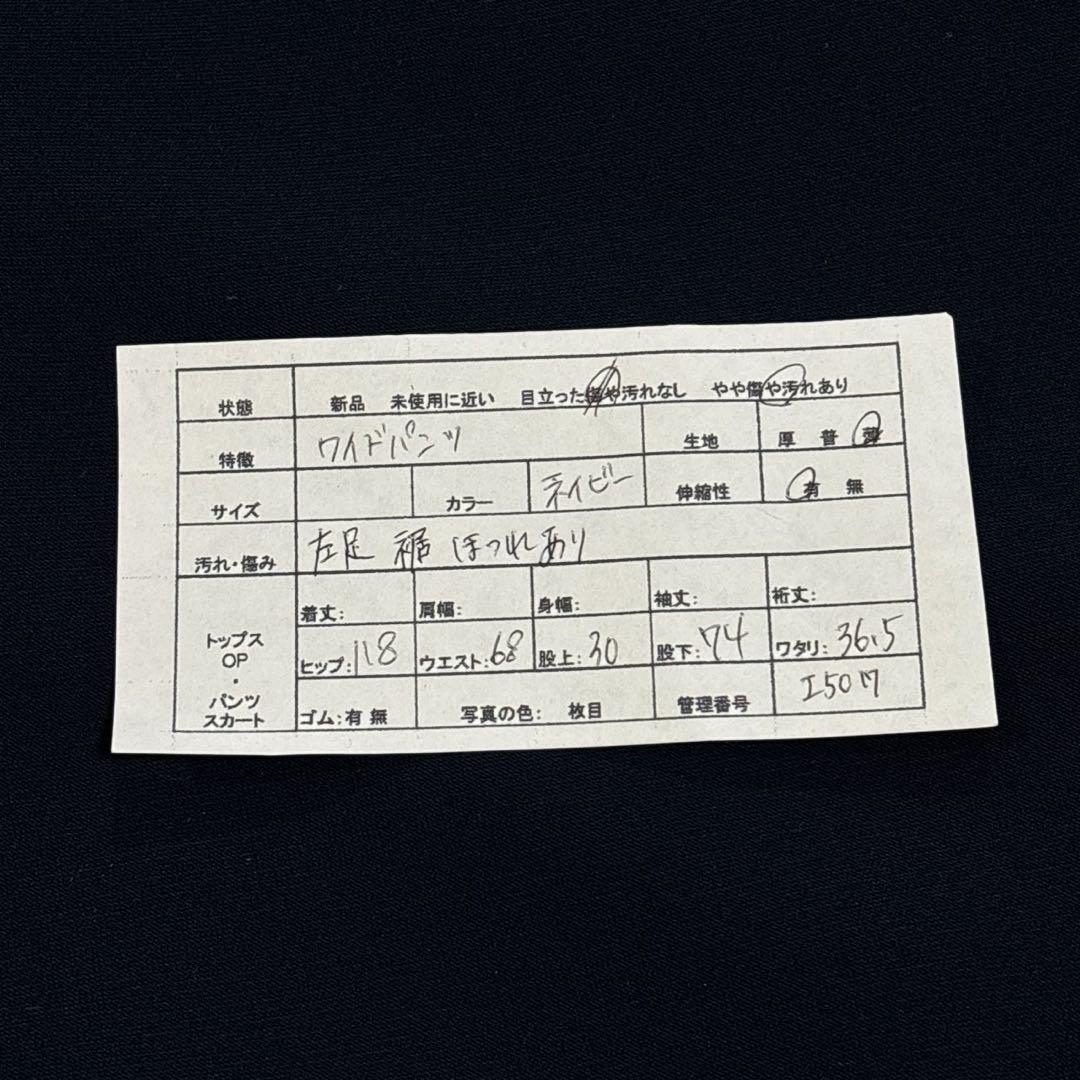 状態 新品 未使用に近い 目立った傷や汚れなし やや傷や汚れあり
特徴 ワイドパンツ 生地 厚 普 薄
サイズ カラー ネイビー 伸縮性 有 無
汚れ・傷み 左足 裾 ほつれあり
トップス
OP
・
パンツ
スカート
着丈: 肩幅: 身幅: 袖丈: 裄丈:
ヒップ:118 ウエスト:68 股上:30 股下:74 ワタリ:36.5
ゴム:有 無 写真の色: 枚目 管理番号 I507